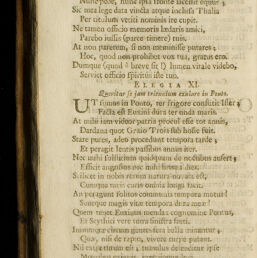 Sic mea lege data vincta atque inclusa Thalia
Per titulum vetiti nominis ire cupit.
Ne tamen officio memoris lædaris amici,
Parebo iussis (parce timere) tuis.
At non parerem, si non meminisse putares;
Hoc, quod non prohibet vox tua, gratus ero.
Dumque (quod ô breve sit!) lumen vitale videbo,
Serviet officio spiritus iste tuo.
ELEGIA XI.
Queritur se jam triennium exulare in Ponto.
UT sumus in Ponto, ter frigore constitit Ister;
Facta est Euxini dura ter unda maris.
At mihi iam videor patria procul esse tot annis,
Dardana quot Graio Troia sub hoste fuit.
Stare putes, adeo procedunt tempora tarde;
Et peragit lentis passibus annus iter.
Nec mihi solstitium quidquam de noctibus aufert;
Efficit angustos nec mihi bruma dies.
Scilicet in nobis rerum natura novata est,
Cumque meis curis omnia longa facit.
An peragunt solitos communia tempora motus?
Suntque magis vitæ tempora dura meæ?
Quem tenet Euxini mendax cognomine
Et Scythici vere terra sinistra freti.
Innumeræ circum gentes fera bella minantur;
Quæ, nisi de rapto, vivere turpe putant.
Nil extra tutum est; tumulus defenditur ipse